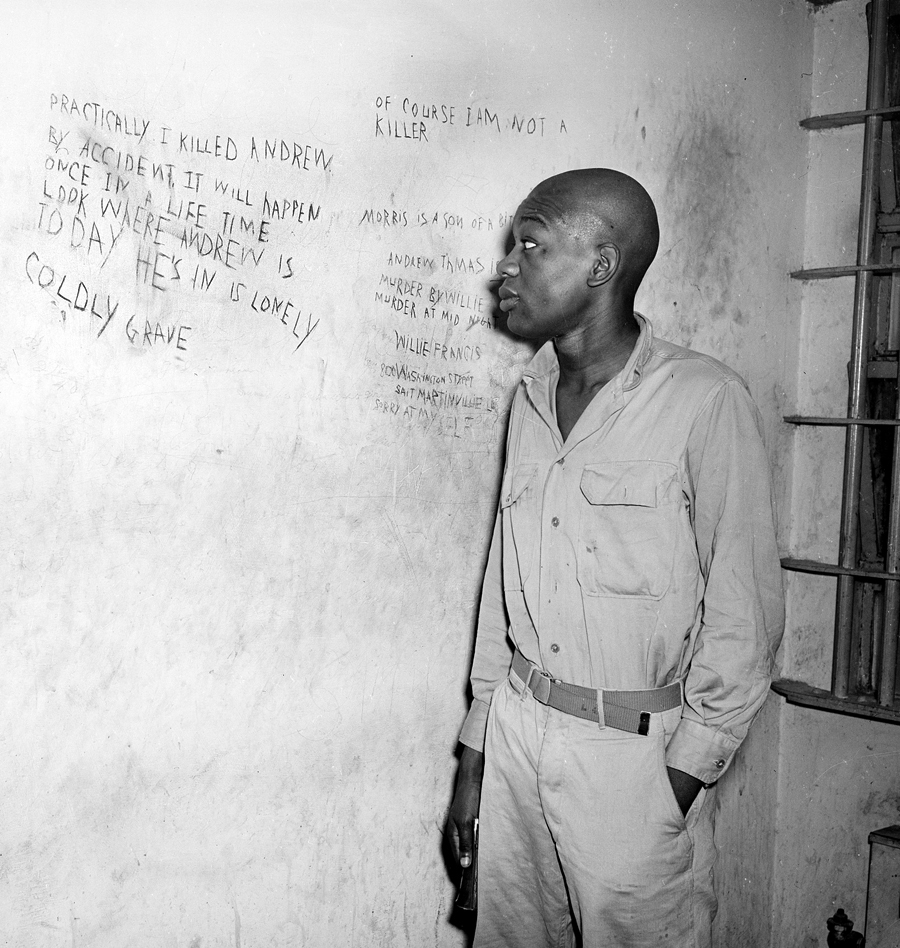 PRACTICALLY I KILLED ANDREW
BY ACCIDENT IT WILL HAPPEN
ONCE IN A LIFE TIME
LOOK WHERE ANDREW IS
TO DAY HE'S IN IS LONELY
COLDLY GRAVE
OF COURSE I AM NOT A
KILLER
MORRIS IS A SON OF A BIT
ANDREW THMAS
MURDER BY WILLIE
MURDER AT MID NIGHT
WILLIE FRANCIS
800 WASHINGTON STREET
SAIT MARTINVILLE LA
SORRY AT MYSELF